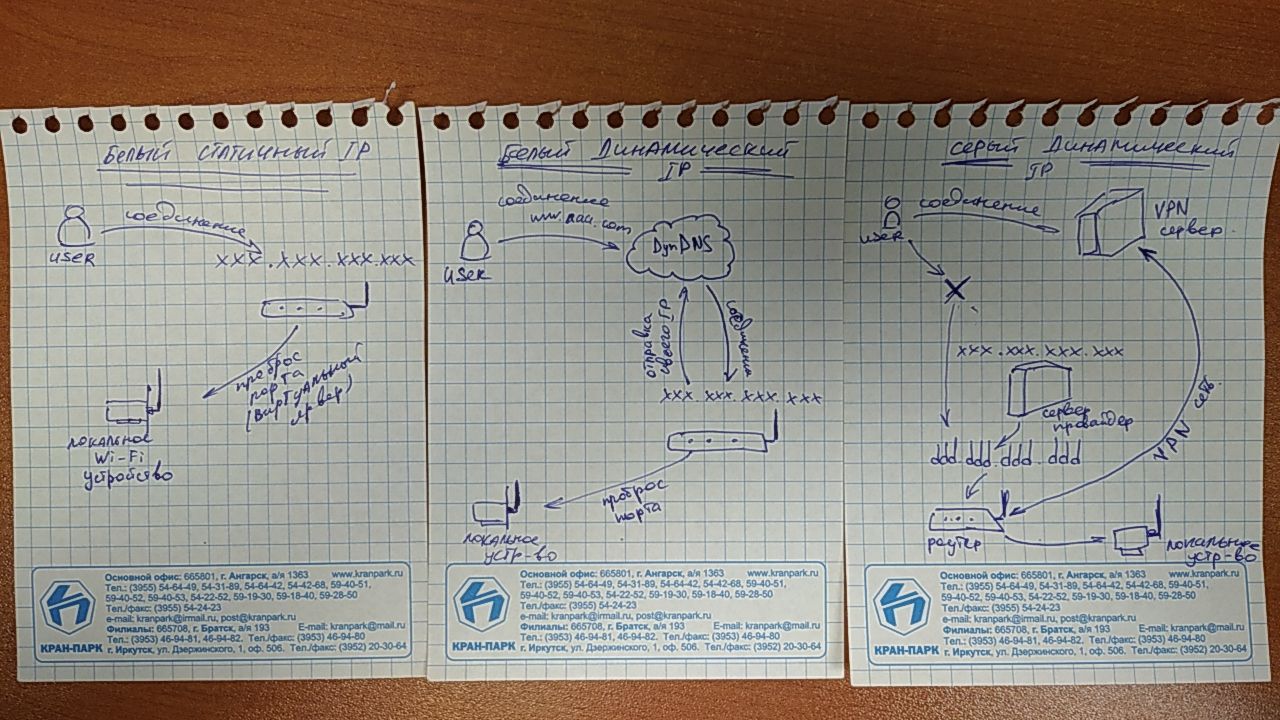 Белый статичный IP
соединение
USER
xxx.xxx.xxx.xxx
проброс
порта
(Виртуальный
сервер)
локальное
Wi-Fi
устройство
Основной офис: 665801, г. Ангарск, а/я 1363 www.kranpark.ru
Тел.: (3955) 54-64-49, 54-31-89, 54-64-42, 54-42-68, 59-40-51,
59-40-52, 59-40-53, 54-22-52, 59-19-30, 59-18-40, 59-28-50
Тел./факс: (3955) 54-24-23
e-mail: kranpark@irmail.ru, post@kranpark.ru
Филиалы: 665708, г. Братск, а/я 193 E-mail: kranpark@mail.ru
Тел.: (3953) 46-94-81, 46-94-82. Тел./факс: (3953) 46-94-80
КРАН-ПАРК г. Иркутск, ул. Дзержинского, 1, оф. 506. Тел./факс: (3952) 20-30-64
Белый Динамический
IP
соединение
DynDNS
USER
отправка
своего IP
соединение
xxx.xxx.xxx.xxx
проброс
порта
локальное
устр-во
Основной офис: 665801, г. Ангарск, а/я 1363 www.kranpark.ru
Тел.: (3955) 54-64-49, 54-31-89, 54-64-42, 54-42-68, 59-40-51,
59-40-52, 59-40-53, 54-22-52, 59-19-30, 59-18-40, 59-28-50
Тел./факс: (3955) 54-24-23
e-mail: kranpark@irmail.ru, post@kranpark.ru
Филиалы: 665708, г. Братск, а/я 193 E-mail: kranpark@mail.ru
Тел.: (3953) 46-94-81, 46-94-82. Тел./факс: (3953) 46-94-80
КРАН-ПАРК г. Иркутск, ул. Дзержинского, 1, оф. 506. Тел./факс: (3952) 20-30-64
серый Динамический
IP
соединение
VPN
сервер.
USER
xxx.xxx.xxx.xxx
сервер
провайдер
ddd.ddd.ddd.ddd
VPN сеть.
роутер
локальное
устр-во
Основной офис: 665801, г. Ангарск, а/я 1363 www.kranpark.ru
Тел.: (3955) 54-64-49, 54-31-89, 54-64-42, 54-42-68, 59-40-51,
59-40-52, 59-40-53, 54-22-52, 59-19-30, 59-18-40, 59-28-50
Тел./факс: (3955) 54-24-23
e-mail: kranpark@irmail.ru, post@kranpark.ru
Филиалы: 665708, г. Братск, а/я 193 E-mail: kranpark@mail.ru
Тел.: (3953) 46-94-81, 46-94-82. Тел./факс: (3953) 46-94-80
КРАН-ПАРК г. Иркутск, ул. Дзержинского, 1, оф. 506. Тел./факс: (3952) 20-30-64